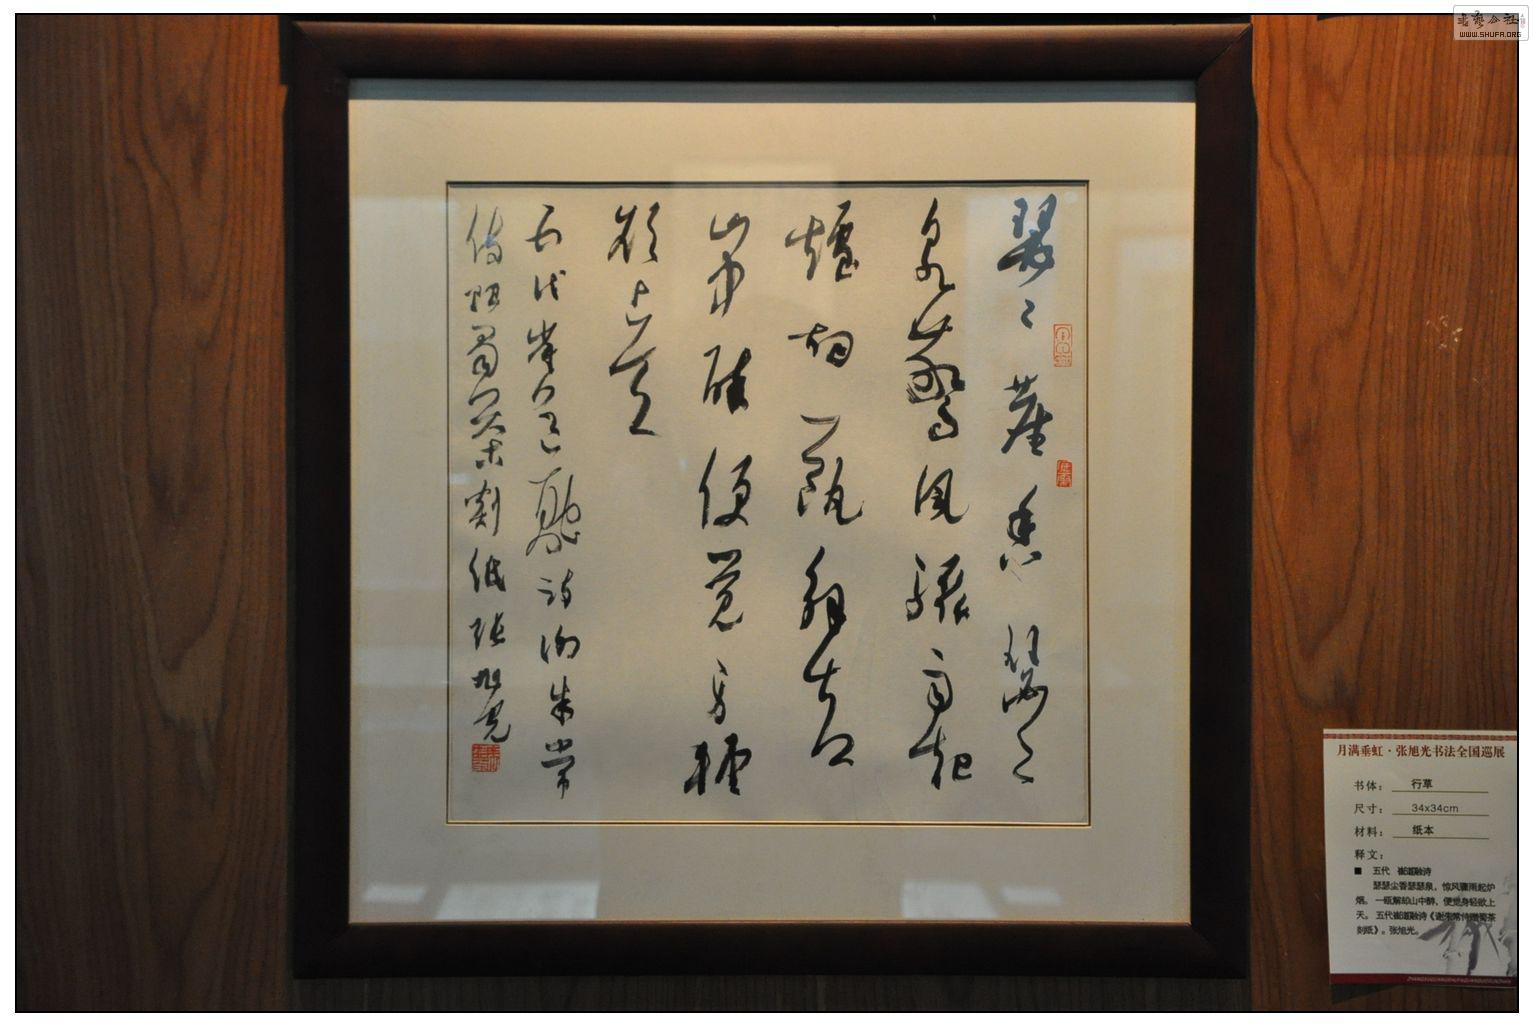 瑟々塵香瑟々
泉驚風驟雨起
爐烟一甌解却
山中醉便覺身輕
欲上天
五代崔道融詩謝朱常
侍贈蜀茶剡紙張旭光
書法公社
WWW.SHUFA.ORG
月满垂虹·张旭光书法全国巡展
书体： 行草
尺寸： 34x34cm
材料： 纸本
释文：
■ 五代 崔道融诗
瑟瑟尘香瑟瑟泉，惊风骤雨起炉
烟。一瓯解却山中醉，便觉身轻欲上
天。五代崔道融诗《谢朱常侍赠蜀茶
剡纸》。张旭光。